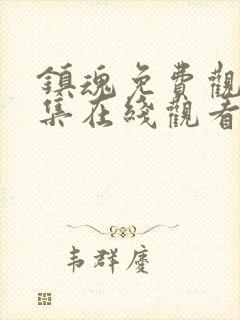 鎮魂免費觀
集在綫觀看
韦群慶